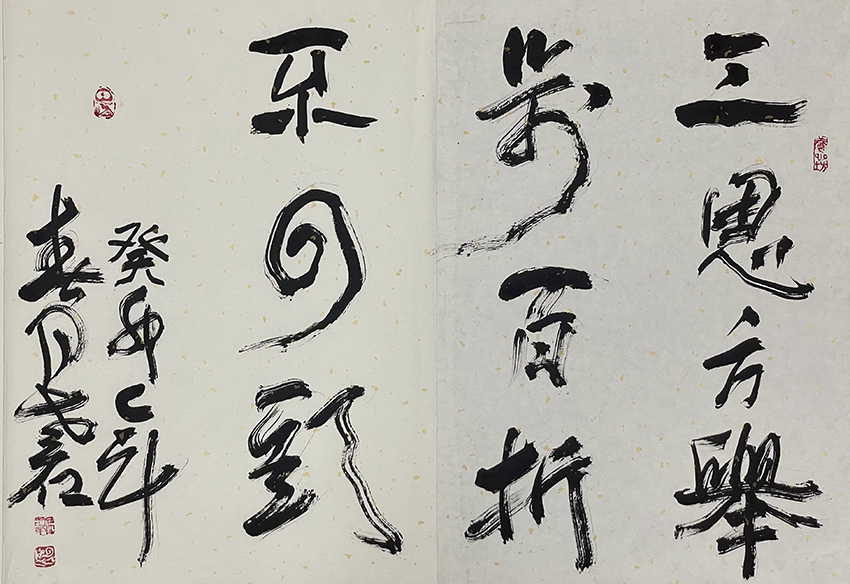 三思方舉
步百折
不回頭
癸卯之年
春月